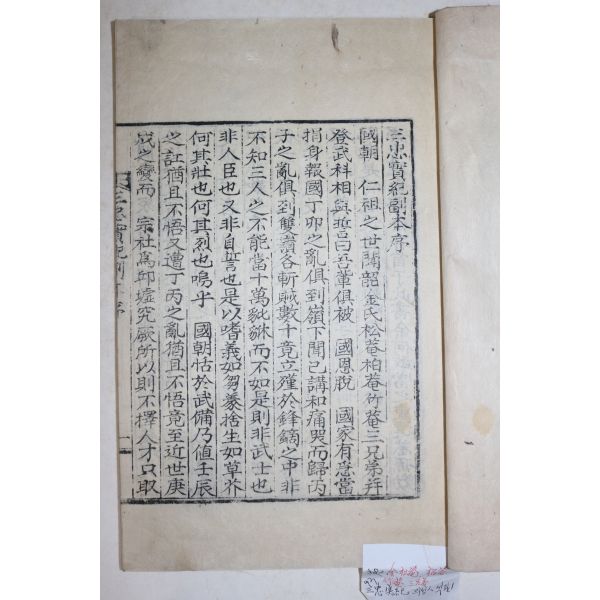 三忠實紀副本序
國朝 仁祖之世聞韶金氏松菴柏菴竹菴三兄弟幷
登武科相與誓曰吾輩俱被 國恩脫 國家有急當
捐身報國丁卯之亂俱到嶺下聞已講和痛哭而歸丙
子之亂俱到雙嶺各斬賊數十竟立殣於鋒鏑之中非
不知三人之不能當十萬豼貅而不如是則非武士也
非人臣也又非自誓也是以嗜義如芻豢捨生如草芥
何其壯也何其烈也嗚乎 國朝怙於武備乃値壬辰
之訌猶且不悟又遭丁丙之亂猶且不悟竟至近世庚
戌之變而 宗社爲邱墟究厥所以則不擇人才只取
三忠實紀副本序
一